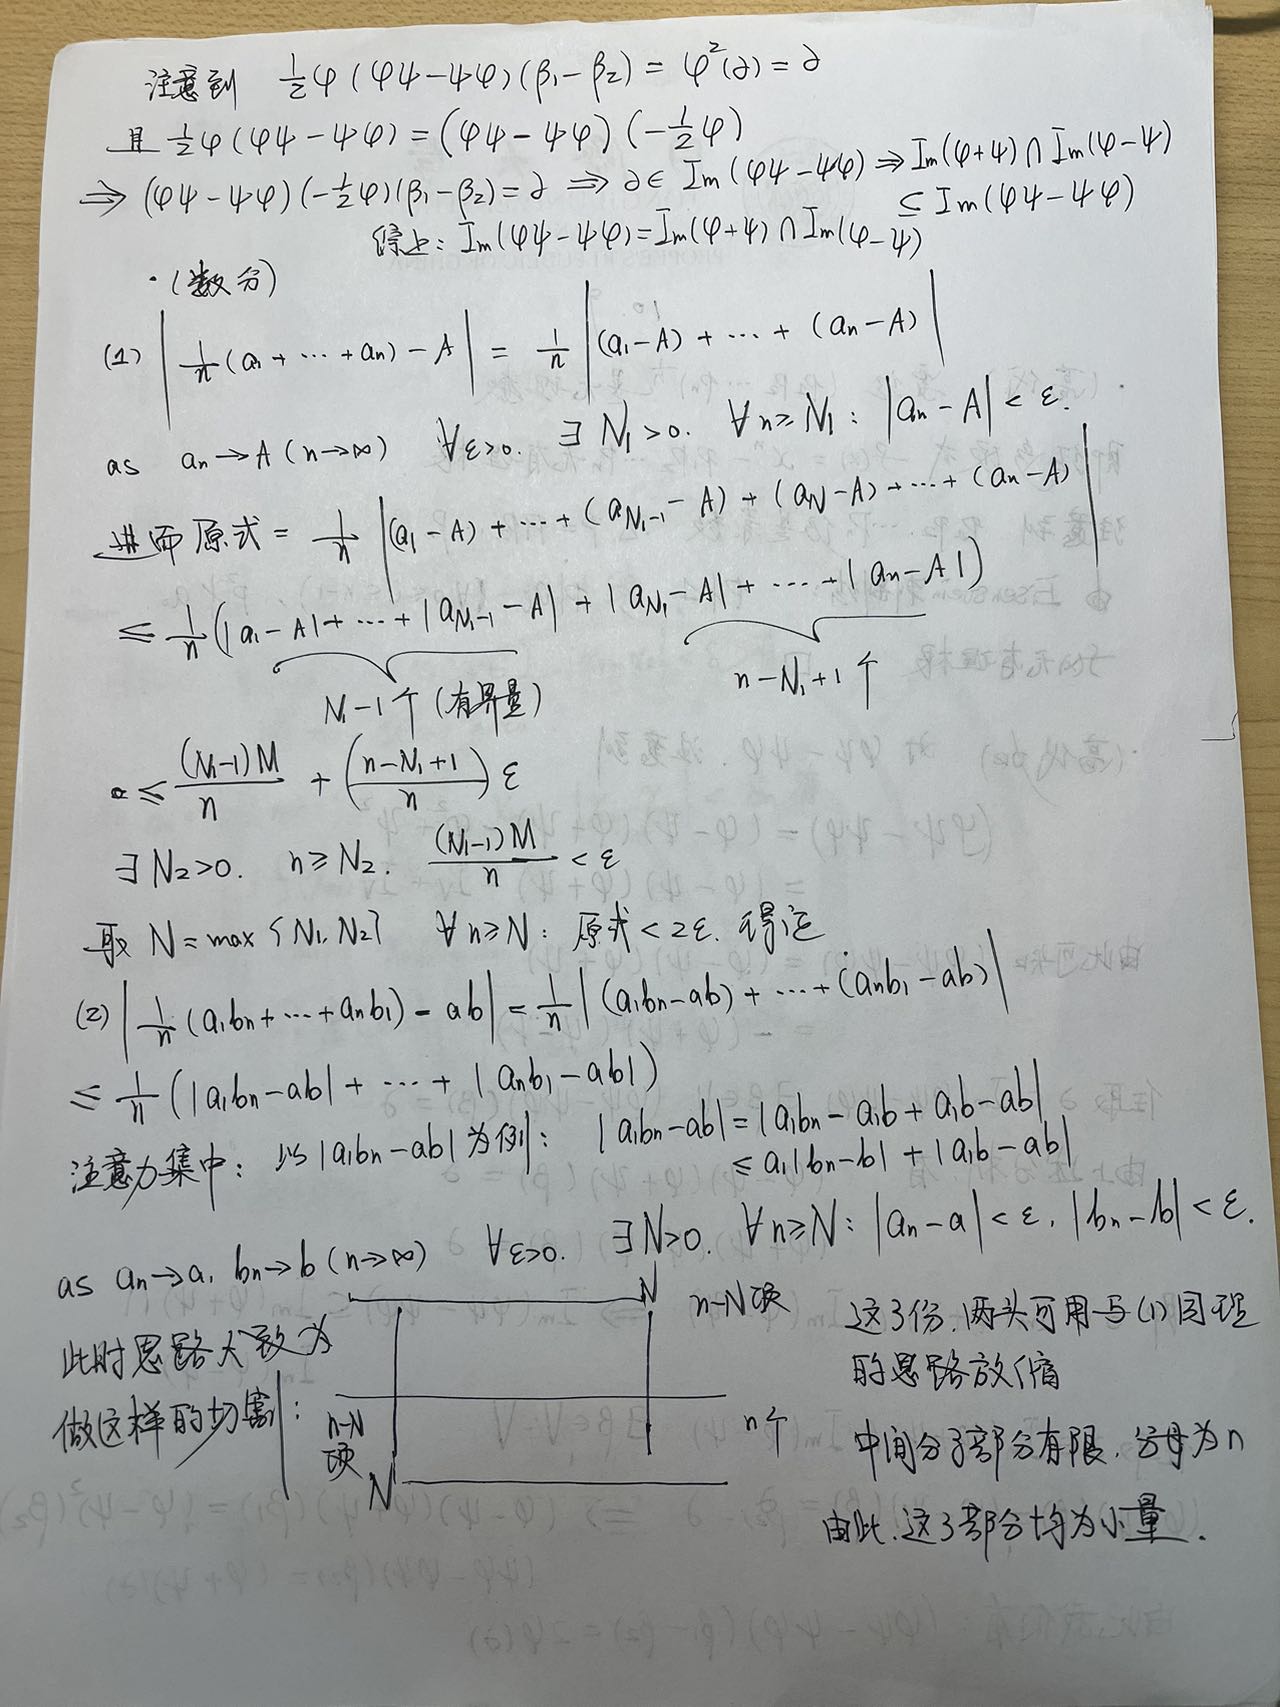 注意到 ½φ(φψ-ψφ)(β₁-β₂) = φ²(∂) = ∂
且 ½φ(φψ-ψφ) = (φψ-ψφ)(-½φ)
⇒ (φψ-ψφ)(-½φ)(β₁-β₂) = ∂ ⇒ ∂ ∈ Im(φψ-ψφ) ⇒ Im(φ+ψ)∩Im(φ-ψ)
⊆ Im(φψ-ψφ)
综上: Im(φψ-ψφ) = Im(φ+ψ)∩Im(φ-ψ)
·(数分)
(1) |1/n (a₁+⋯+aₙ) - A| = 1/n |(a₁-A)+⋯+(aₙ-A)|
as aₙ→A (n→∞) ∀ε>0. ∃N₁>0. ∀n≥N₁: |aₙ-A|<ε.
进而原式 = 1/n |(a₁-A)+⋯+(a_{N₁-1}-A)+(a_N-A)+⋯+(aₙ-A)|
≤ 1/n (|a₁-A|+⋯+|a_{N₁-1}-A|+|a_{N₁}-A|+⋯+|aₙ-A|)
N₁-1个(有界量) n-N₁+1个
≤ (N₁-1)M/n + ((n-N₁+1)/n) ε
∃N₂>0. n≥N₂. (N₁-1)M/n < ε
取 N = max{N₁, N₂} ∀n≥N: 原式<2ε. 得证
(2) |1/n (a₁bₙ+⋯+aₙb₁) - ab| = 1/n |(a₁bₙ-ab)+⋯+(aₙb₁-ab)|
≤ 1/n (|a₁bₙ-ab|+⋯+|aₙb₁-ab|)
注意力集中: 以|a₁bₙ-ab|为例: |a₁bₙ-ab| = |a₁bₙ-a₁b+a₁b-ab|
≤ a₁|bₙ-b|+|a₁b-ab|
as aₙ→a, bₙ→b (n→∞) ∀ε>0. ∃N>0. ∀n≥N: |aₙ-a|<ε, |bₙ-b|<ε.
此时思路大致为
做这样的切割:
N
n-N项
n-N
项
N
n个
这3份, 两头可用与(1)同理
的思路放缩
中间分子部分有限, 分母为n
由此, 这3部分均为小量.